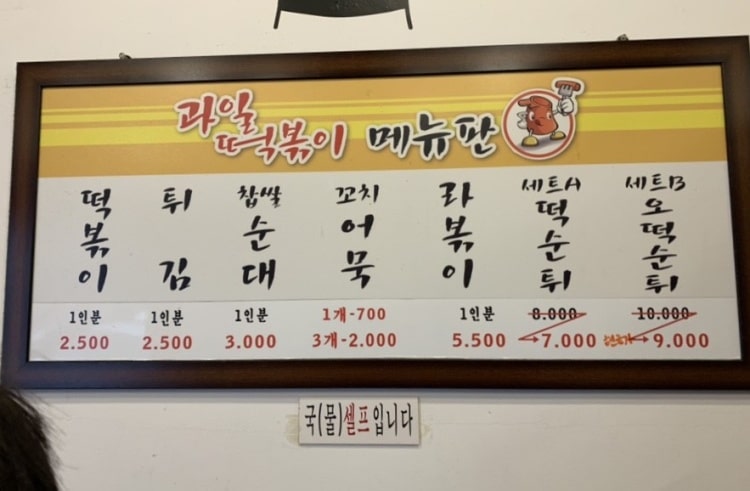 과일떡볶이 메뉴판
떡볶이 튀김 찹쌀순대 꼬치어묵 라볶이 세트A 떡순튀 세트B 오떡순튀
1인분 1인분 1인분 1개-700 1인분 8.000 10.000
2.500 2.500 3.000 3개-2.000 5.500 7.000 9.000
국(물)셀프입니다